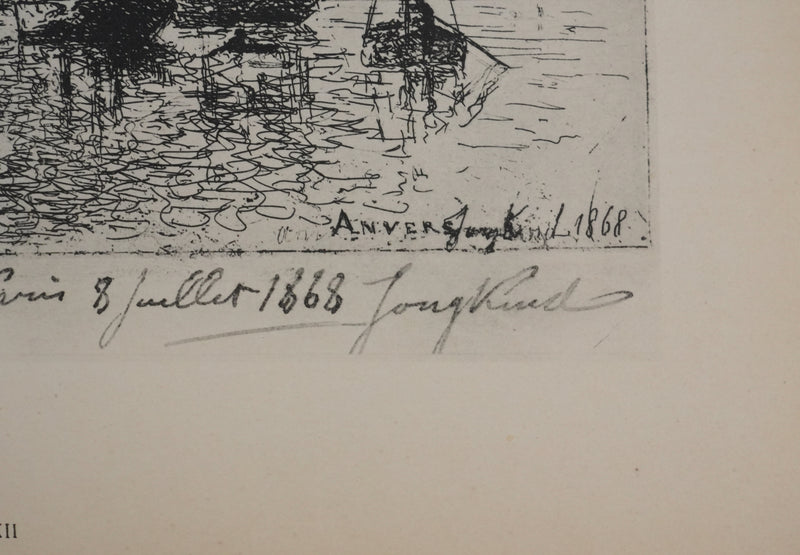 ANVERS JongKind 1868
Paris 8 Juillet 1868 JongKind
XII